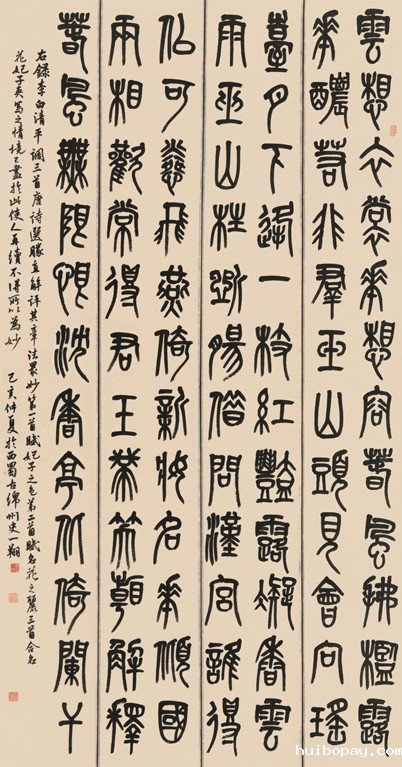 雲想衣裳華想容春風拂檻露
華醲若非羣玉山頭見會向瑤
臺月下逢一枝紅豔露凝香雲
雨巫山枉斷腸借問漢宮誰得
似可憐飛燕倚新妝名華傾國
兩相歡常得君王帶笑看解釋
春風無限恨沈香亭北倚闌干
右錄李白清平調三首唐詩選勝直解評其章法最妙第一首賦妃子之色第二首賦名花之麗三首合名
花妃子夾寫之情境已盡於此使人再續不得所以為妙 己亥仲夏於西蜀古綿州史一翔
huibopay.com